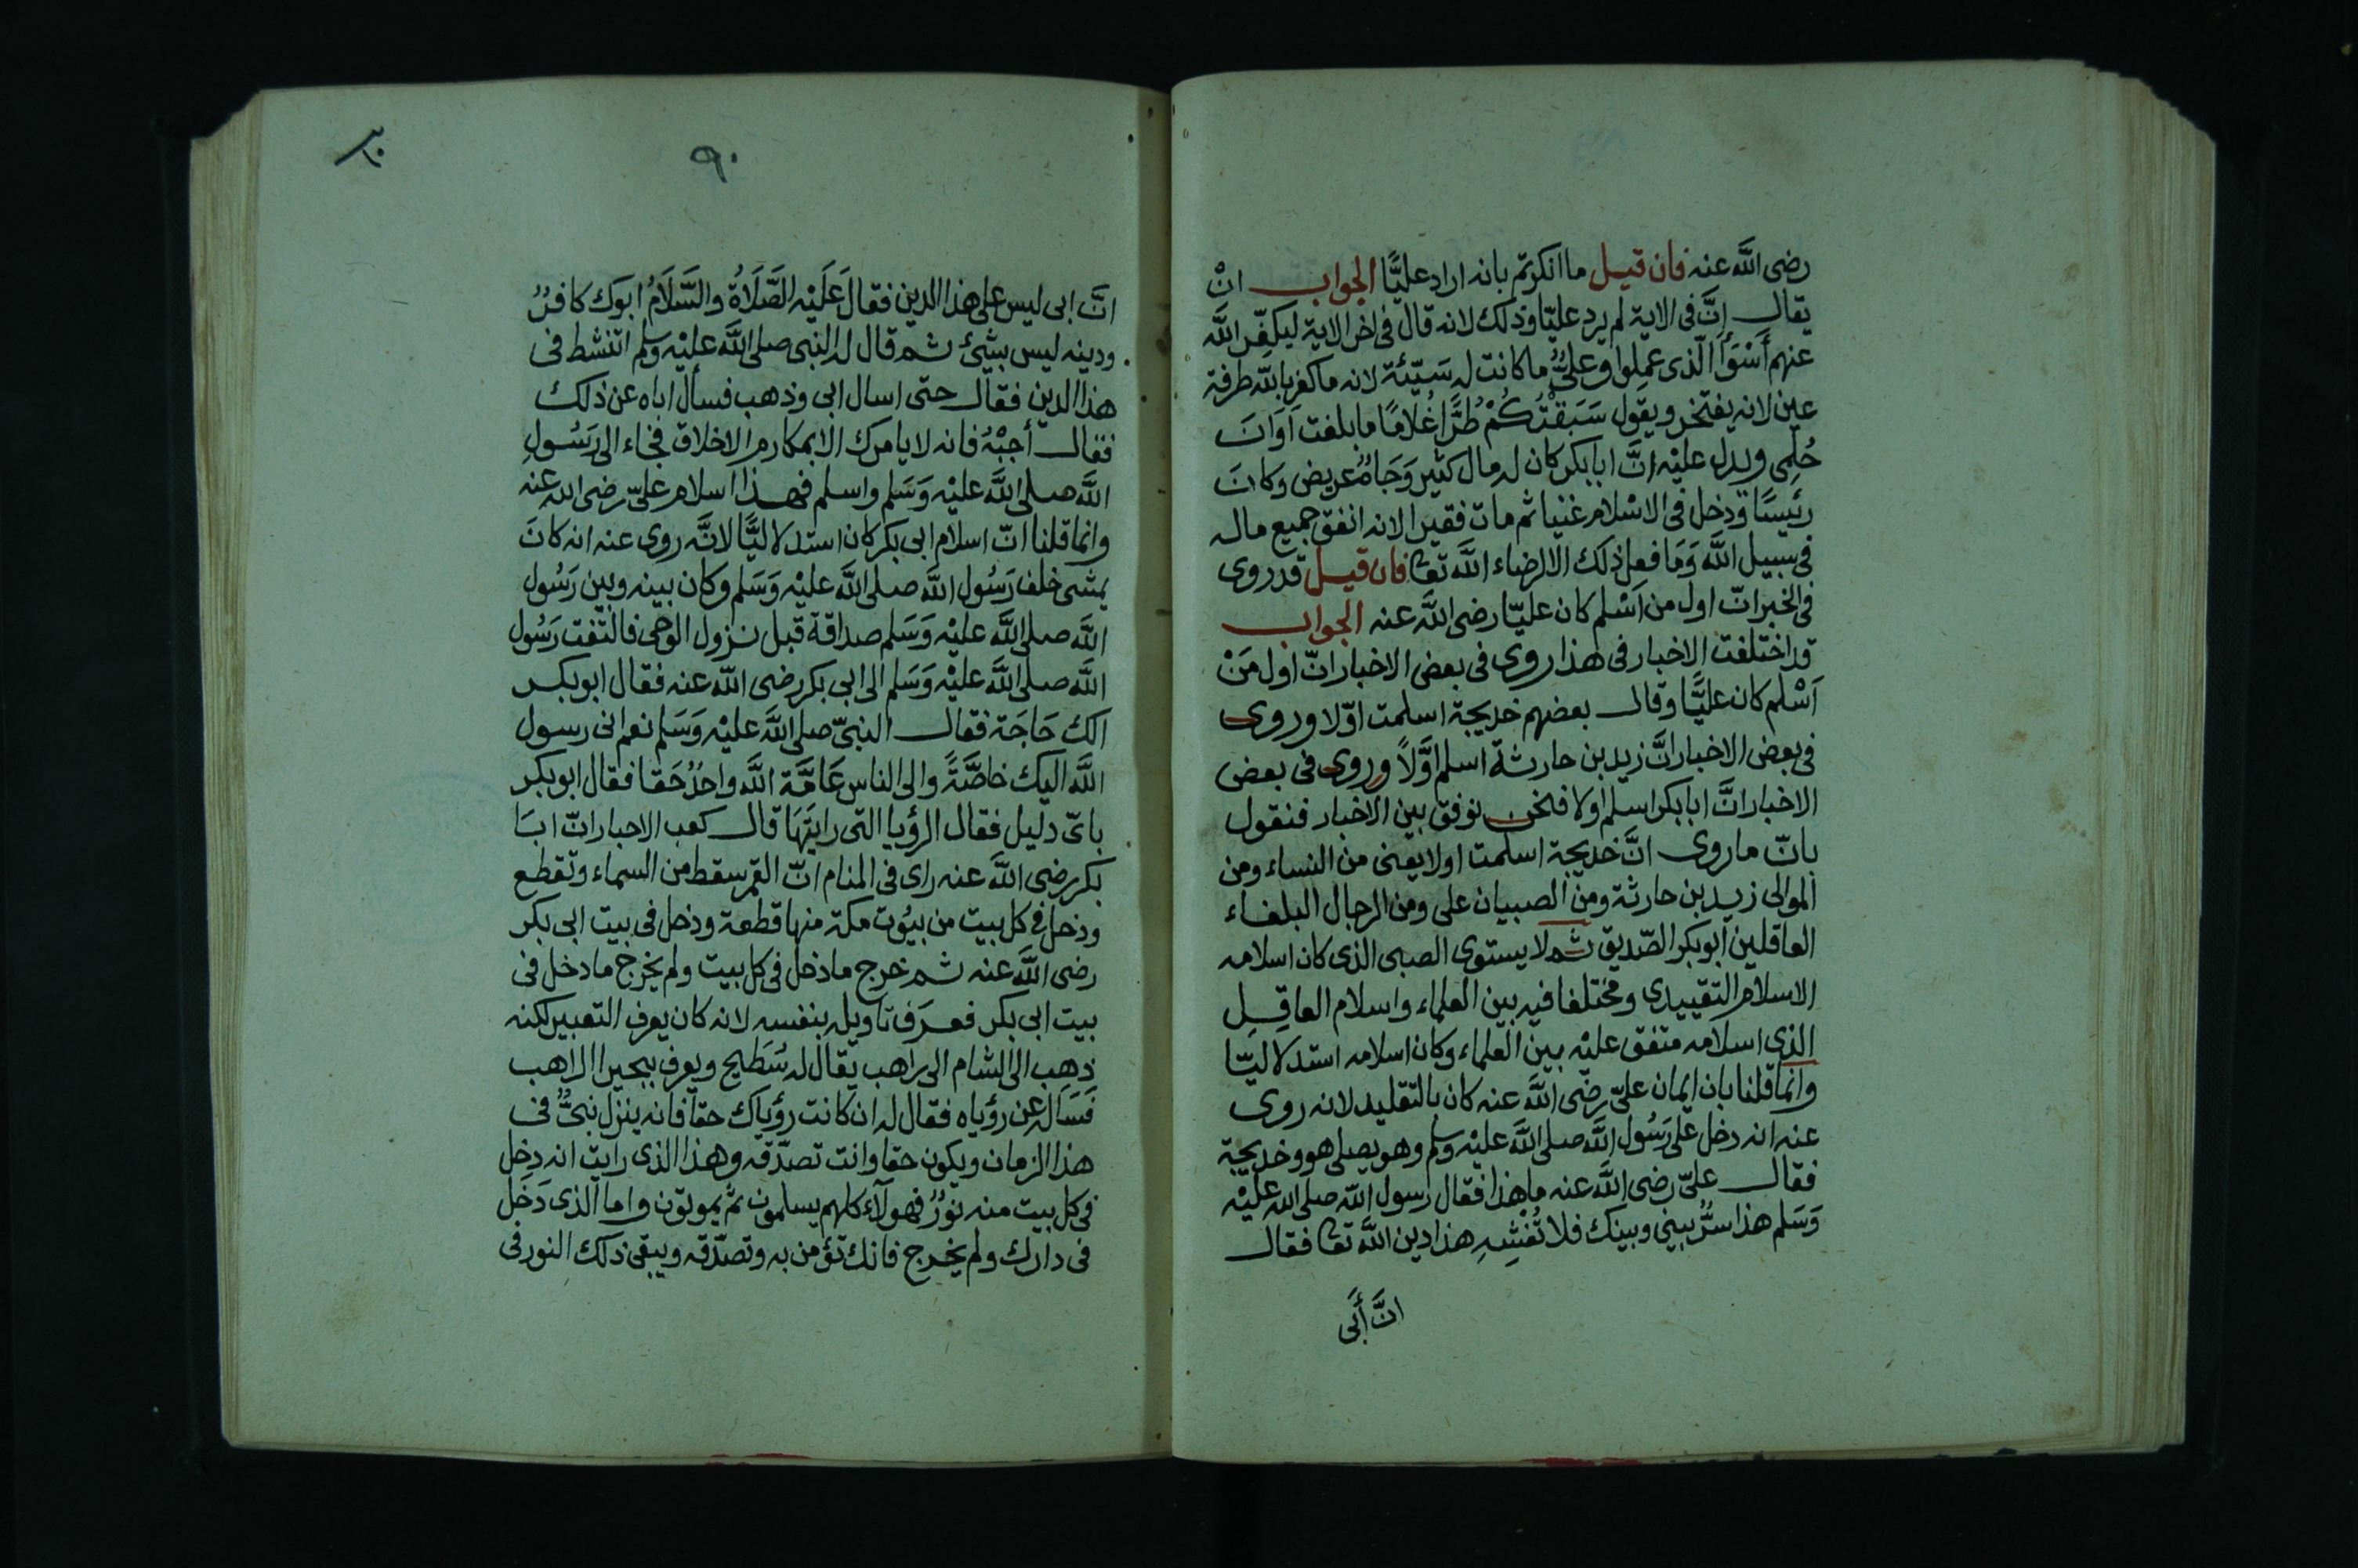 رضى الله عنه فان قيل ما انكرتم بانه اراد عليًّا الجواب انْ
يقال اِنَّ فى الاية لم يرد عليّا وذلك لانه قال فى اخر الاية ليكفِّر الله
عنهم أَسْوَأَ الّذى عمِلوا وعلىٌّ ما كانت له سَيّئة لانه ما كفر بالله طرفة
عين لانه يفتخر ويقول سَبَقْتُكُمْ طُرًّا غُلامًا ما بلغت اَوَانَ
حُلمِى ويدل عليْه انَّ ابا بكر كان له مال كثير وَجَاهٌ عريض وكانَ
رئيسًا ودخل فى الاسْلام غنيا ثم مات فقيرا لانه انفق جميع ماله
فى سبيل الله وَمَا فعل ذلك الا لرضاء الله تعا فان قيل قد روى
فى الخبر انّ اول من اَسْلم كان عليّا رضى الله عنه الجواب
قد اختلفت الاخبار فى هذا روى فى بعض الاخبار انّ اول مَنْ
اَسْلم كان عليًّا وقال بعضهم خديجة اسلمت اوّلا وروى
فى بعض الاخبار انَّ زيد بن حارثة اسلم اوَّلاً وروى فى بعض
الاخبار انَّ ابا بكر اسلم اولا فنحن نوفق بين الاخبار فنقول
بانّ ما روى انَّ خديجة اسلمت اولا يعنى من النساء ومن
الموالى زيد بن حارثة ومن الصبيان على ومن الرجال البلغاء
العاقلين ابو بكر الصّديق ثم لا يستوى الصبى الذى كان اسلامه
الاسلام التقييدى ومختلفا فيه بين العلماء واسلام العاقِلِ
الذى اسلامه متفق عليْه بين العلماء وكان اسلامه استدلاليّا
وانما قلنا بان ايمان علىّ رضى الله عنه كان بالتقليد لانه روى
عنه انه دخل على رَسُول الله صلى الله عليْه وسلم وهو يصلى هو وخديجة
فقال علىّ رضى الله عنه ما هذا فقال رسول الله صلى الله عليْه
وَسَلم هذا سرٌّ بينى وبينك فلا تُفْشِهِ هذا دين الله تعا فقال
انَّ أَبى
٩٠
انَّ ابى ليس على هذا الدين فقالَ عَلَيْه الصَّلَاةُ والسَّلَامُ ابوك كافرٌ
ودينه ليس بشيئ ثم قال له النبى صلى الله عليْه وسلم اتنشط فى
هذا الدين فقال حتى اسال ابى وذهب فسأل اباه عن ذلك
فقال أجبْهُ فانه لا يامرك الا بمكارم الاخلاق فجاء الى رَسُولِ
الله صلى الله عليْه وَسَلم واسلم فهذا اسلام علىّ رضى الله عنه
وانما قلنا انّ اسلام ابى بكر كان استدلاليًّا لانَّه روى عنه انه كانَ
يمشى خلف رَسُول الله صلى الله عليْه وَسَلم وكان بينه وبين رَسُول
الله صلى الله عليْه وَسَلم صداقة قبل نزول الوحى فالتفت رَسُول
الله صلى الله عليْه وَسَلم الى ابى بكر رضى الله عنه فقال ابو بكر
الك حَاجَة فقال النبىّ صلى الله عليْه وَسَلم نعم انى رسول
الله اليك خاصَّةً والى الناس عَامَّة الله واحدٌ حَقا فقال ابو بكر
باىّ دليل فقال الرؤيا التى رايتَهَا قال كعب الاحبار انّ ابَا
بكر رضى الله عنه راى فى المنام انّ القمر سقط من السماء وتقطع
ودخل فى كل بيت من بيُوت مكة منها قطعة ودخل فى بيت ابى بكر
رضى الله عنه ثم خرج ما دخل فى كل بيت ولم يخرج ما دخل فى
بيت ابى بكر فعرَف تاويله بنفسه لانه كان يعرف التعبير لكنه
ذهِب الى الشام الى راهب يقال له سُطيح ويعرف ببحيرا الراهب
فسَاله عن رؤياه فقال له ان كانت رؤياك حقا فانه ينزل نبىٌّ فى
هذا الزمان ويكون حقا وانت تصدّقه وهذا الذى رايت انه دخل
فى كل بيت منه نورٌ فهولآء كلهم يسلمون ثم يموتون واما الذى دَخَل
فى دارك ولم يخرج فانك تؤمن به وتصدّقه ويبقى ذلك النور فى